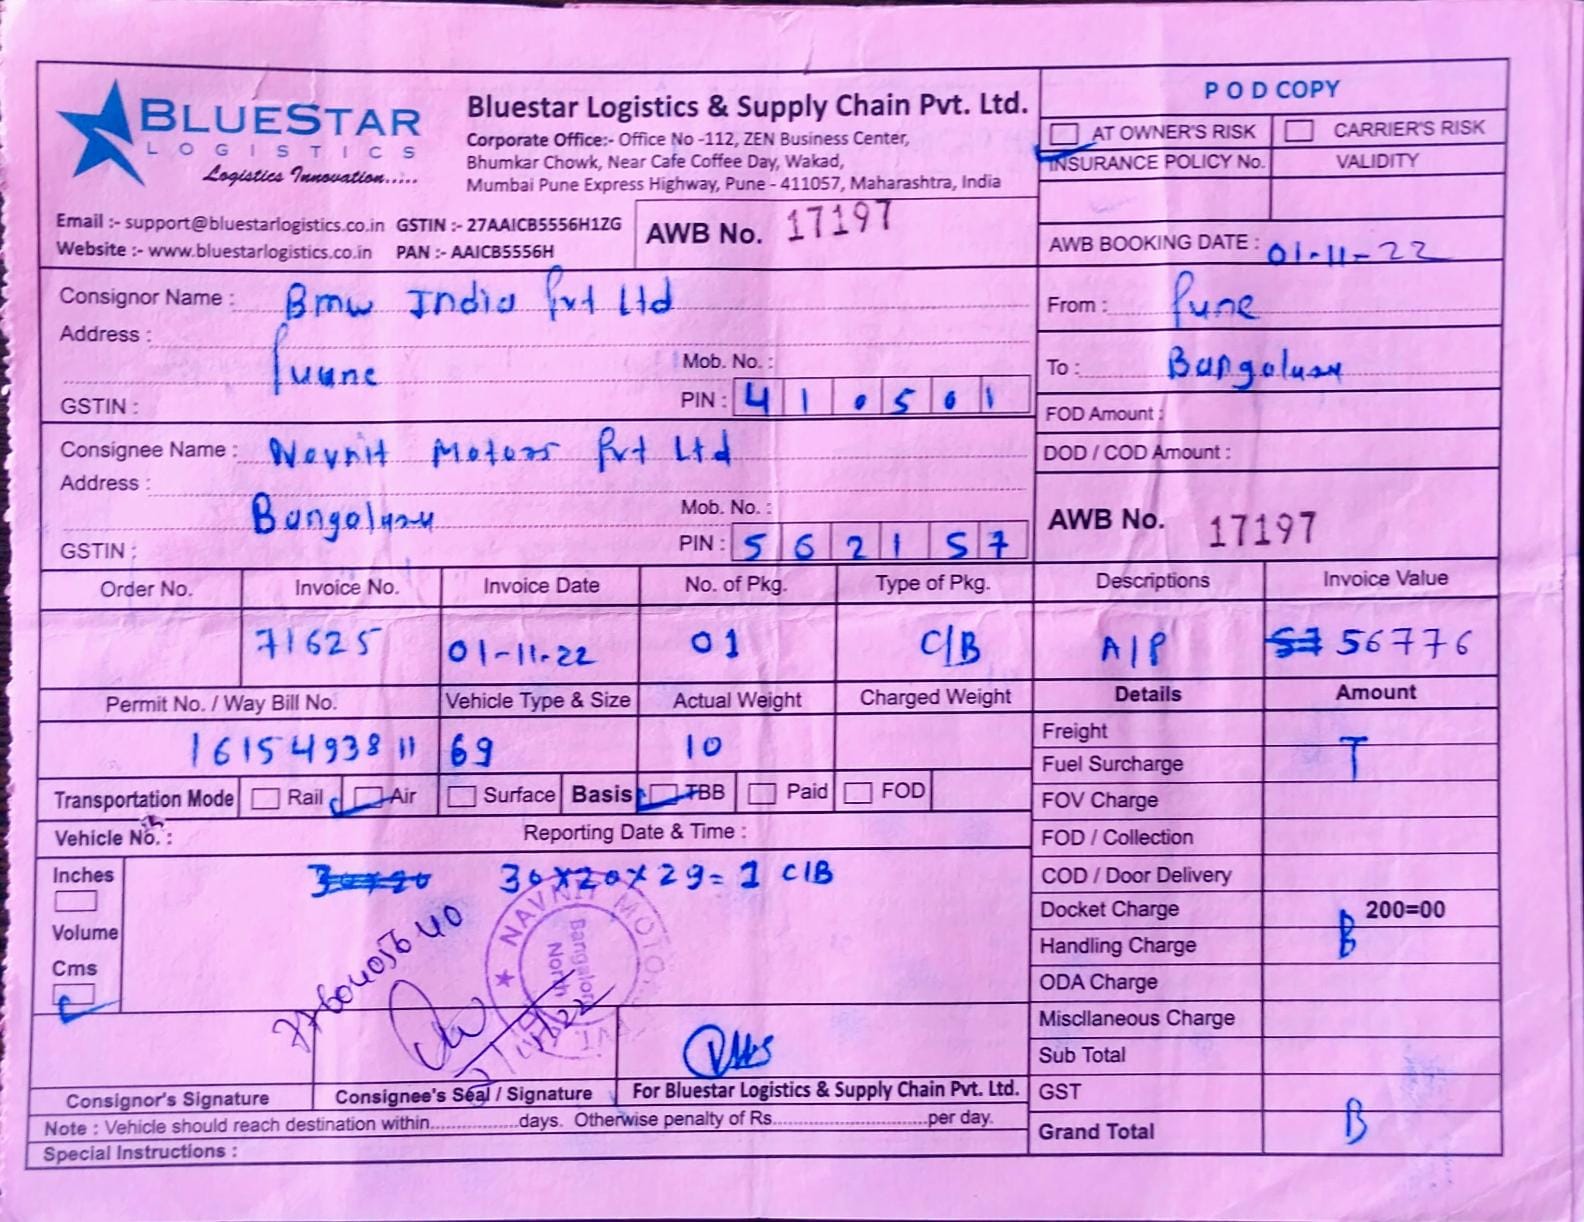 BLUESTAR
LOGISTICS
Logistics Innovation.....
Bluestar Logistics & Supply Chain Pvt. Ltd.
Corporate Office:- Office No -112, ZEN Business Center,
Bhumkar Chowk, Near Cafe Coffee Day, Wakad,
Mumbai Pune Express Highway, Pune - 411057, Maharashtra, India
Email :- support@bluestarlogistics.co.in GSTIN :- 27AAICB5556H1ZG
Website :- www.bluestarlogistics.co.in PAN :- AAICB5556H
AWB No. 17197
POD COPY
AT OWNER'S RISK CARRIER'S RISK
INSURANCE POLICY No. VALIDITY
AWB BOOKING DATE : 01-11-22
Consignor Name : Bmw India Pvt Ltd
Address :
Puune
Mob. No. :
GSTIN :
PIN : 410501
From : Pune
To : Bangalury
FOD Amount :
DOD / COD Amount :
Consignee Name : Navnit Motors Pvt Ltd
Address :
Bangalury
Mob. No. :
GSTIN :
PIN : 562157
AWB No. 17197
Order No. Invoice No. Invoice Date No. of Pkg. Type of Pkg. Descriptions Invoice Value
71625 01-11-22 01 C/B A/P 56776
Permit No. / Way Bill No. Vehicle Type & Size Actual Weight Charged Weight Details Amount
1615493811 69 10
Freight T
Fuel Surcharge
Transportation Mode Rail Air Surface Basis TBB Paid FOD
FOV Charge
Vehicle No. : Reporting Date & Time :
FOD / Collection
Inches 30x20 30x20x29=1 C/B
COD / Door Delivery
Volume
Docket Charge 200=00
Handling Charge B
Cms
ODA Charge
NAVNIT MOTO
Bangalore
North
Miscllaneous Charge
Sub Total
Consignor's Signature Consignee's Seal / Signature For Bluestar Logistics & Supply Chain Pvt. Ltd.
GST
Note : Vehicle should reach destination within..................days. Otherwise penalty of Rs................................per day.
Grand Total B
Special Instructions :